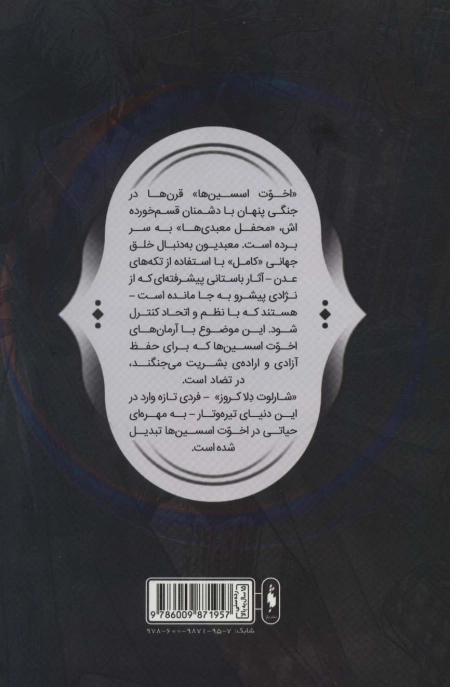 «اخوّت اسسین‌ها» قرن‌ها در
جنگی پنهان با دشمنان قسم‌خورده
اش، «محفل معبدی‌ها» به سر
برده است. معبدیون به‌دنبال خلق
جهانی «کامل» با استفاده از تکه‌های
عدن - آثار باستانی پیشرفته‌ای که از
نژادی پیشرو به جا مانده است -
هستند که با نظم و اتحاد کنترل
شود. این موضوع با آرمان‌های
اخوّت اسسین‌ها که برای حفظ
آزادی و اراده‌ی بشریت می‌جنگند،
در تضاد است.
«شارلوت دِلا کروز» - فردی تازه وارد در
این دنیای تیره‌وتار - به مهره‌ای
حیاتی در اخوّت اسسین‌ها تبدیل
شده است.
رده‌سنی
۱۵ سال به بالا
9 786009 871957
شابک: ۷-۹۵-۹۸۷۱-۶۰۰-۹۷۸